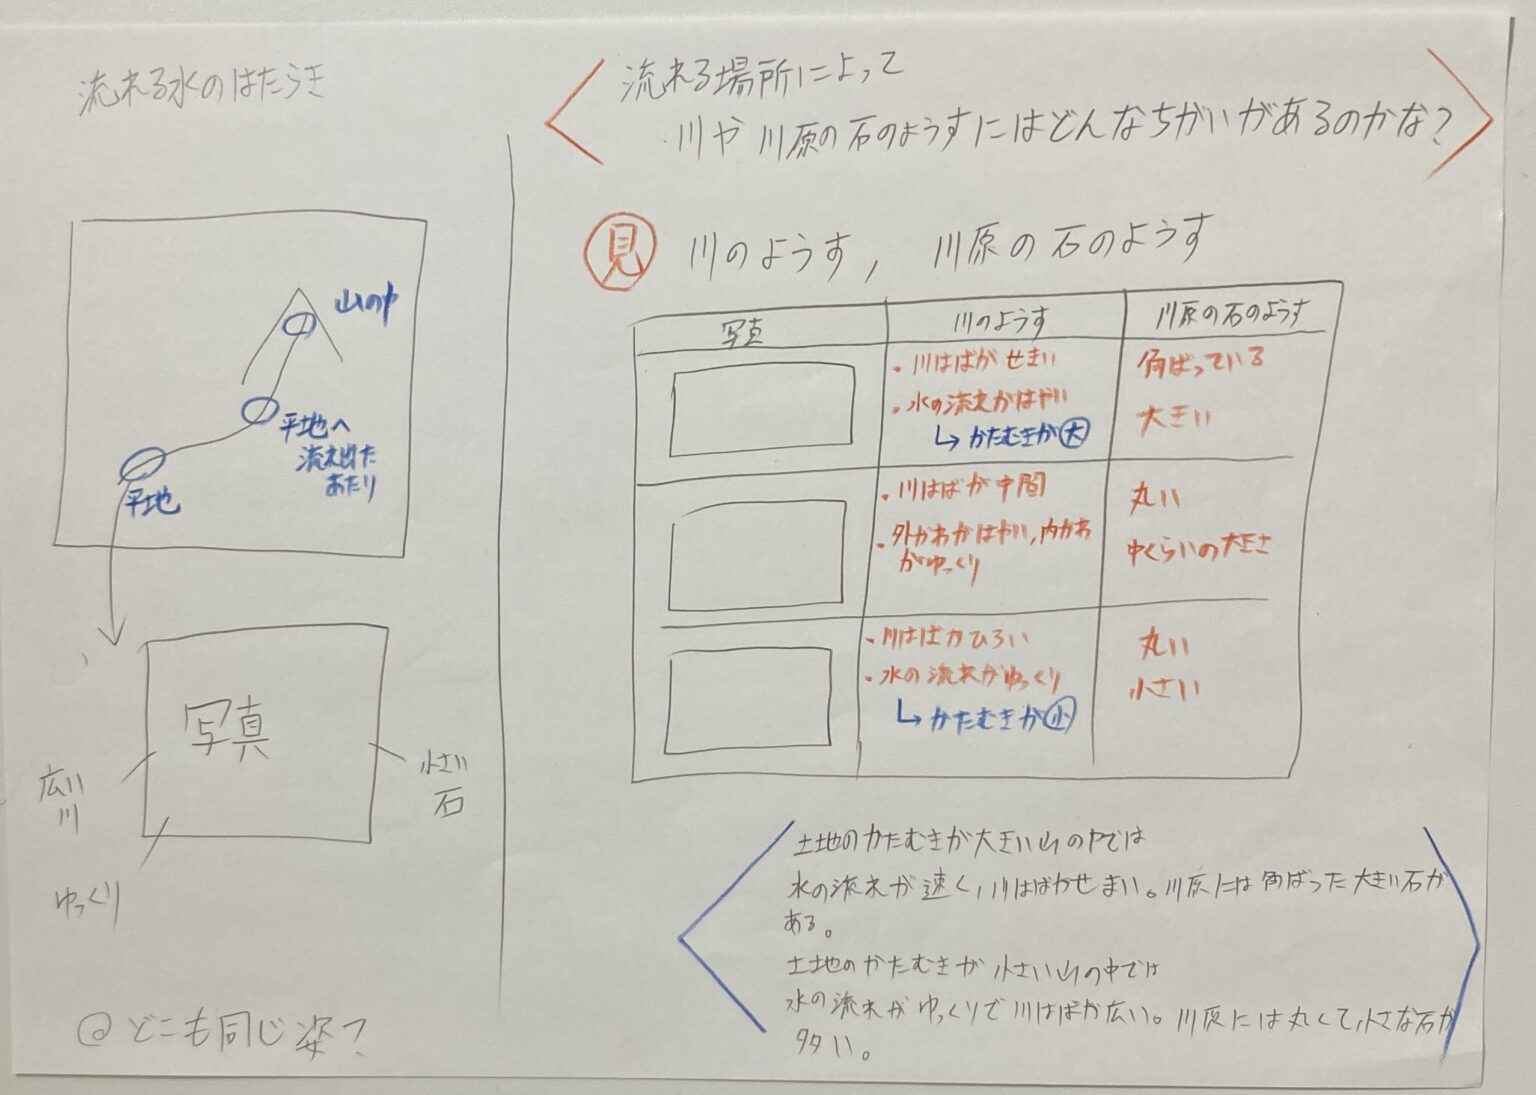 流れる水のはたらき
山の中
平地へ
流れ出た
あたり
平地
写真
広い
川
小さい
石
ゆっくり
@どこも同じ姿?
流れる場所によって
川や川原の石のようすにはどんなちがいがあるのかな?
見 川のようす, 川原の石のようす
写真 川のようす 川原の石のようす
・川はばがせまい 角ばっている
・水の流れがはやい 大きい
↳かたむきが大
・川はばが中間 丸い
・外がわがはやい,内がわ 中くらいの大きさ
がゆっくり
・川はばがひろい 丸い
・水の流れがゆっくり 小さい
↳かたむきが小
土地のかたむきが大きい山の中では
水の流れが速く,川はばがせまい。川原には角ばった大きい石が
ある。
土地のかたむきが小さい山の中では
水の流れがゆっくりで川はばが広い。川原には丸くて,小さな石が
多い。